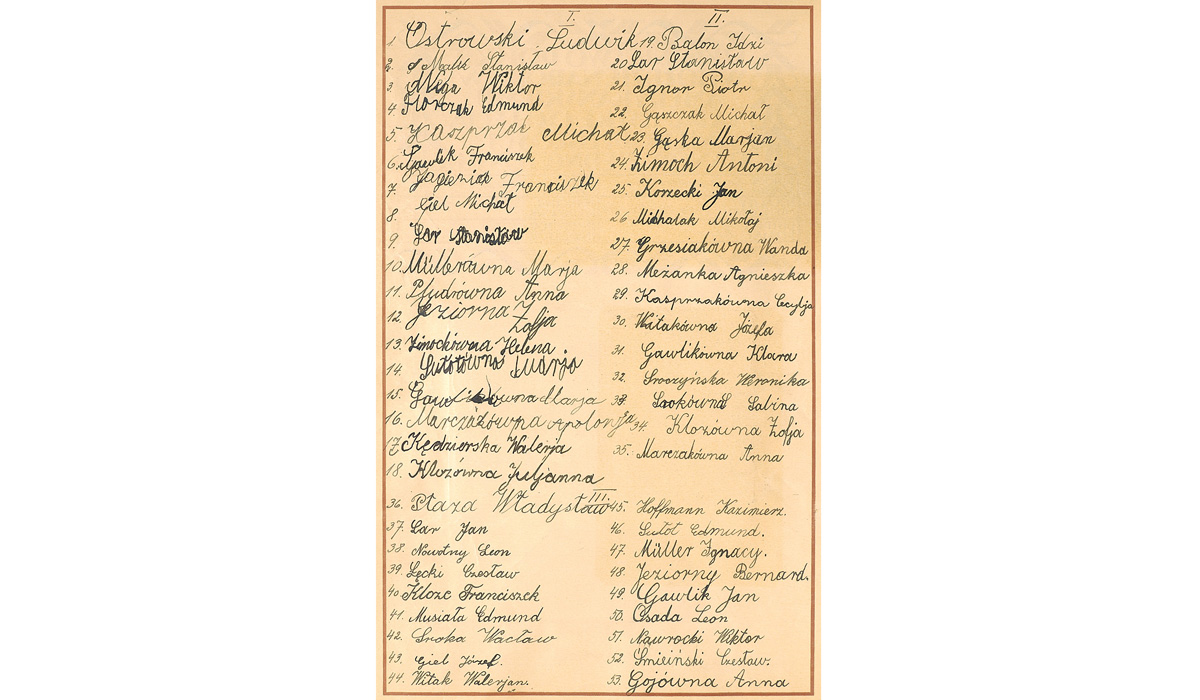 I.
1. Ostrowski Ludwik
2. Malik Stanisław
3. Miga Wiktor
4. Florczak Edmund
5. Kaszprzak Michał
6. Gawlik Franciszek
7. Jagieniak Franciszek
8. Giel Michał
9. Łar Stanisław
10. Müllerówna Marja
11. Pludrówna Anna
12. Jeziorna Zofja
13. Zimochówna Helena
14. Sutotówna Marja
15. Gawlikówna Marja
16. Marczakówna Apolonja
17. Kędziorska Walerja
18. Klozówna Juljanna
II.
19. Balon Idzi
20 Łar Stanisław
21. Ignor Piotr
22. Gąszczak Michał
23. Gąska Marjan
24. Zimoch Antoni
25. Korzecki Jan
26 Michalak Mikołaj
27. Grzesiakówna Wanda
28. Meżanka Agnieszka
29. Kasprzakówna Cecylja
30. Witakówna Józefa
31. Gawlikówna Klara
32. Sroczyńska Weronika
33. Srokówna Sabina
34. Klozówna Zofja
35. Marczakówna Anna
III.
36. Płaza Władysław
37. Łar Jan
38. Nowotny Leon
39. Łęcki Czesław
40 Kloze Franciszek
41. Musiała Edmund
42. Sroka Wacław
43. Giel Józef.
44. Witak Walerjan.
45. Hoffmann Kazimierz.
46. Sutot Edmund.
47. Müller Ignacy.
48. Jeziorny Bernard.
49. Gawlik Jan
50. Osada Leon
51. Nawrocki Wiktor
52. Śmieiński Czesław.
53. Gojówna Anna